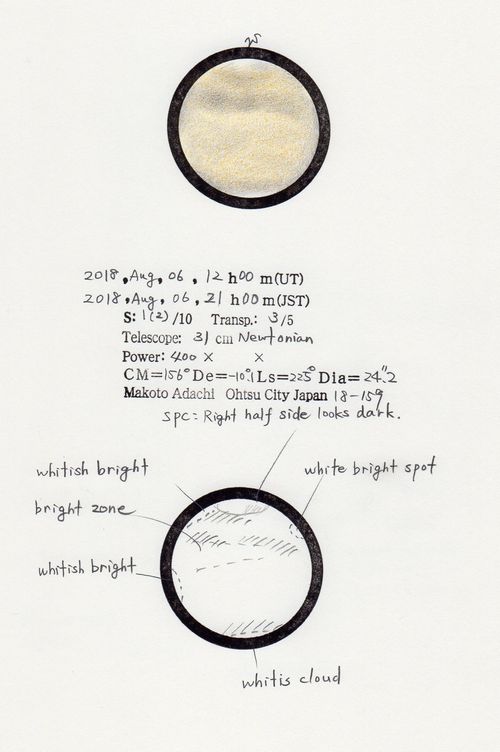 S
2018, Aug, 06, 12 h00 m(UT)
2018, Aug, 06, 21 h00 m(JST)
S: 1(2)/10 Transp.: 3/5
Telescope: 31 cm Newtonian
Power: 400 × ×
CM=156° De=-10.°1 Ls=225° Dia=24."2
Makoto Adachi Ohtsu City Japan 18-159
SPC: Right half side looks dark.
whitish bright
white bright spot
bright zone
whitish bright
whitis cloud